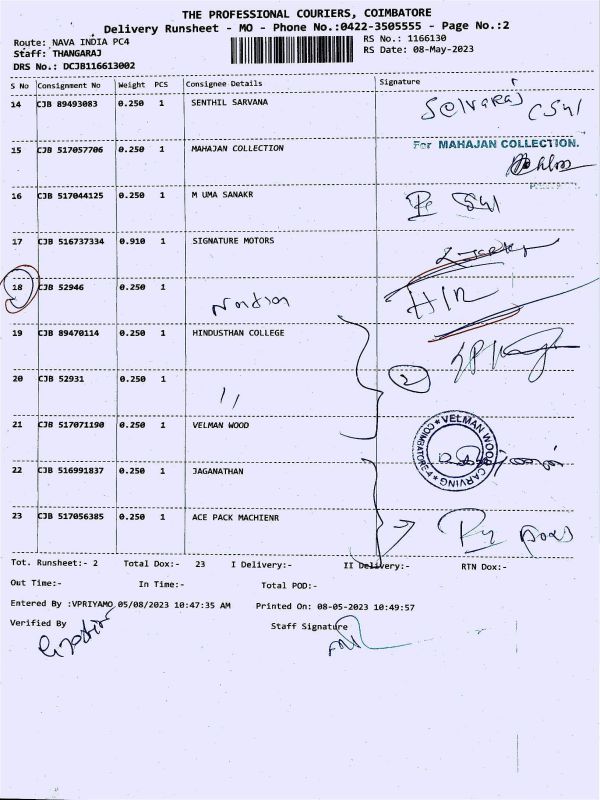 THE PROFESSIONAL COURIERS, COIMBATORE
Delivery Runsheet - MO - Phone No.:0422-3505555 - Page No.:2
Route: NAVA INDIA PC4
RS No.: 1166130
Staff: THANGARAJ
RS Date: 08-May-2023
DRS No.: DCJB116613002
S No Consignment No Weight PCS Consignee Details Signature
14 CJB 89493083 0.250 1 SENTHIL SARVANA
Selvaraj
15 CJB 517057706 0.250 1 MAHAJAN COLLECTION
For MAHAJAN COLLECTION.
16 CJB 517044125 0.250 1 M UMA SANAKR
17 CJB 516737334 0.910 1 SIGNATURE MOTORS
18 CJB 52946 0.250 1
19 CJB 89470114 0.250 1 HINDUSTHAN COLLEGE
20 CJB 52931 0.250 1 11
2
21 CJB 517071190 0.250 1 VELMAN WOOD
VELMAN WOOD CARVING * COIMBATORE-4 *
22 CJB 516991837 0.250 1 JAGANATHAN
23 CJB 517056385 0.250 1 ACE PACK MACHIENR
Tot. Runsheet:- 2 Total Dox:- 23 I Delivery:- II Delivery:- RTN Dox:-
Out Time:- In Time:- Total POD:-
Entered By :VPRIYAMO 05/08/2023 10:47:35 AM Printed On: 08-05-2023 10:49:57
Verified By Staff Signature